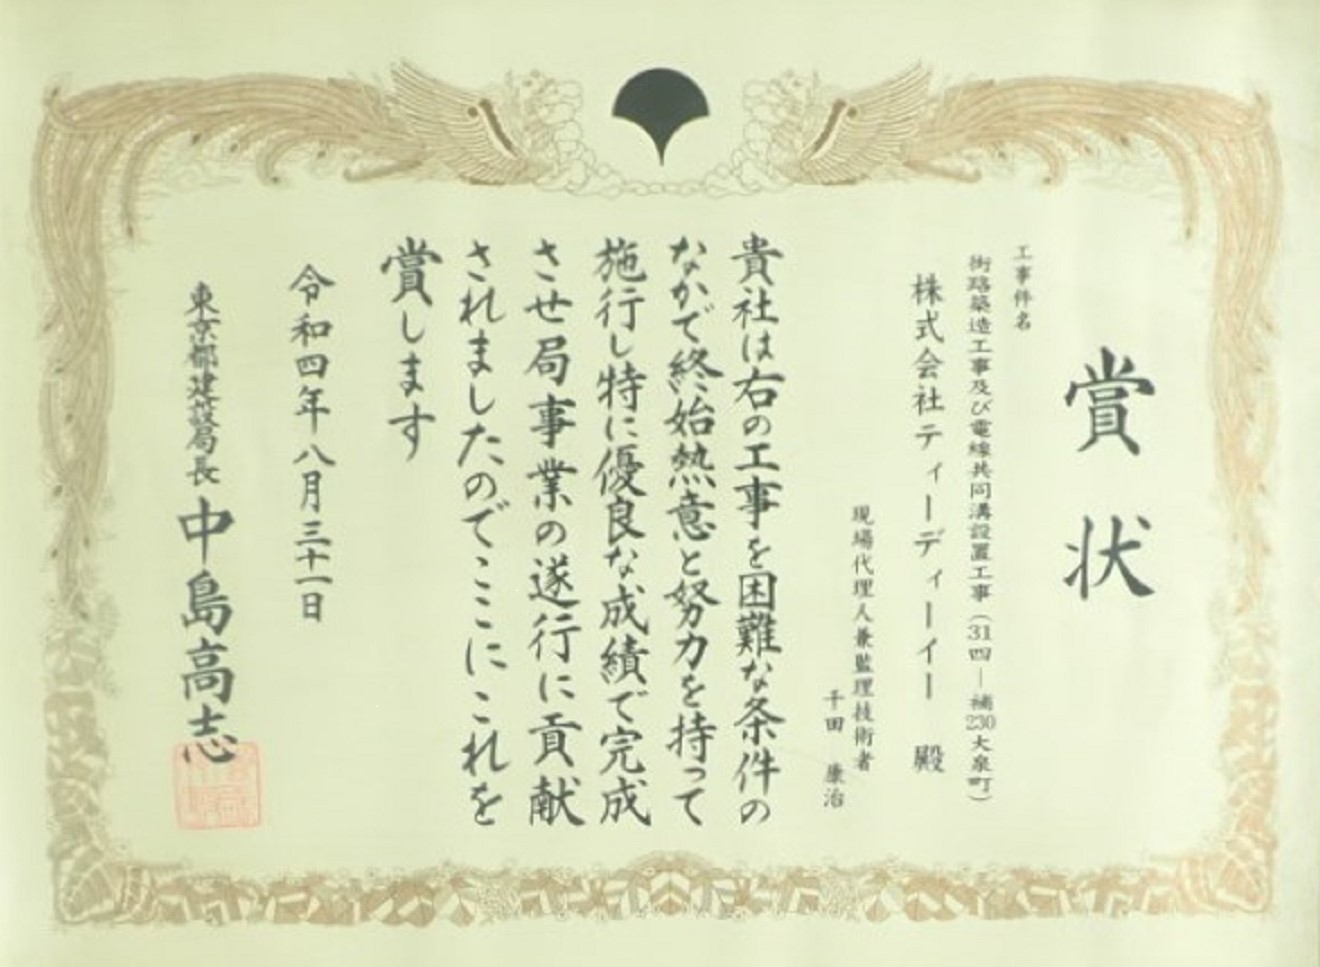 賞状
工事件名
街路築造工事及び電線共同溝設置工事(31四―補230大泉町)
株式会社ティーディーイー 殿
現場代理人兼監理技術者
千田 康治
貴社は右の工事を困難な条件の
なかで終始熱意と努力を持って
施行し特に優良な成績で完成
させ局事業の遂行に貢献
されましたのでここにこれを
賞します
令和四年八月三十一日
東京都建設局長 中島高志